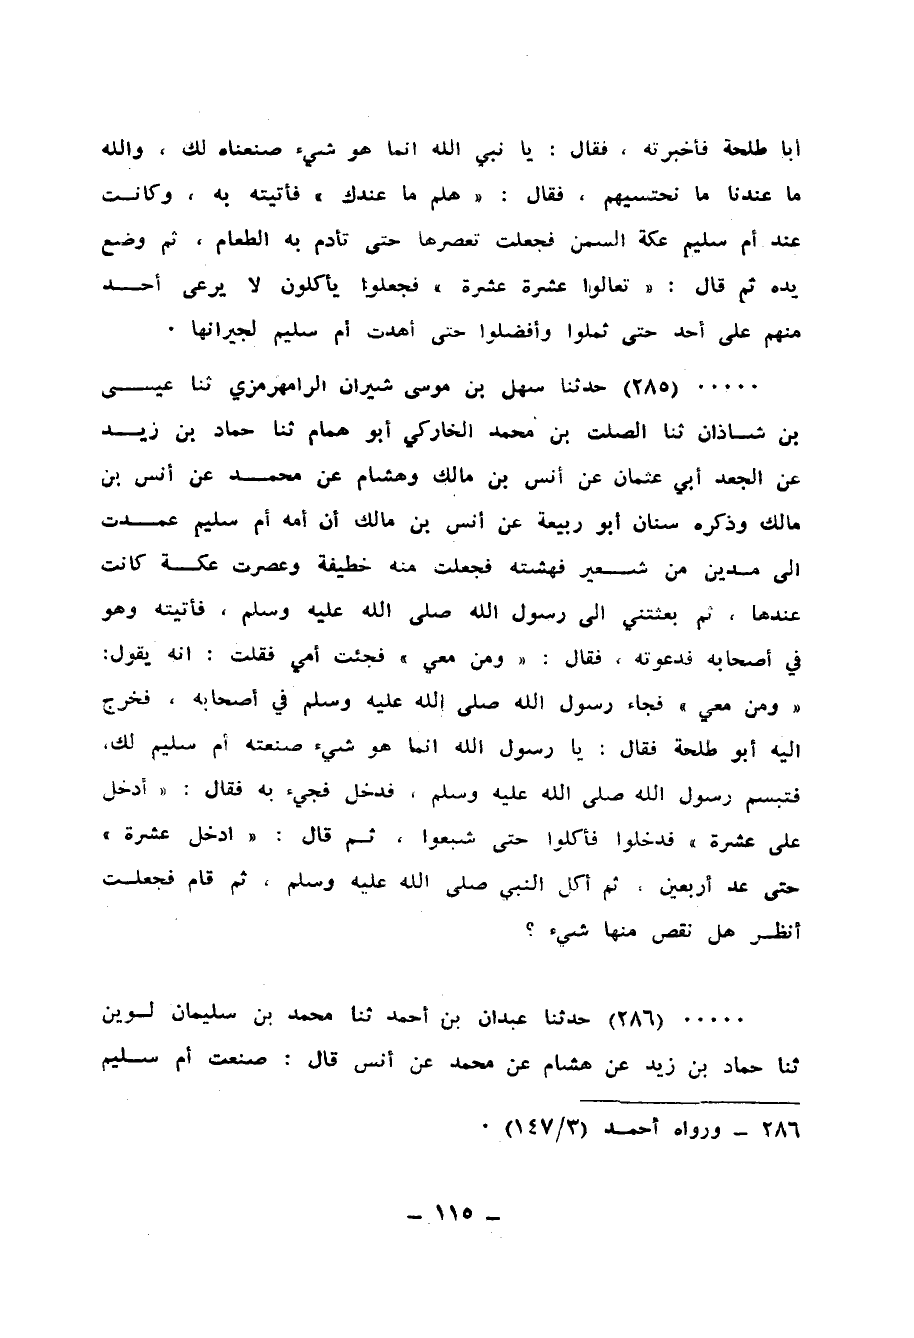 أبا طلحة فأخبرته ، فقال : يا نبي الله انما هو شيء صنعناه لك ، والله
ما عندنا ما نحتسيهم ، فقال : « هلم ما عندك » فأتيته به ، وكانت
عند أم سليم عكة السمن فجعلت تعصرها حتى تأدم به الطعام ، ثم وضع
يده ثم قال : « تعالوا عشرة عشرة » فجعلوا يأكلون لا يرعى أحد
منهم على أحد حتى ثملوا وأفضلوا حتى أهدت أم سليم لجيرانها .
..... (٢٨٥) حدثنا سهل بن موسى شيران الرامهرمزي ثنا عيسى
بن شاذان ثنا الصلت بن محمد الخاركي أبو همام ثنا حماد بن زيد
عن الجعد أبي عثمان عن أنس بن مالك وهشام عن محمد عن أنس بن
مالك وذكره سنان أبو ربيعة عن أنس بن مالك أن أمه أم سليم عمدت
الى مدين من شعير فهشته فجعلت منه خطيفة وعصرت عكة كانت
عندها ، ثم بعثتني الى رسول الله صلى الله عليه وسلم ، فأتيته وهو
في أصحابه فدعوته ، فقال : « ومن معي » فجئت أمي فقلت : انه يقول:
« ومن معي » فجاء رسول الله صلى الله عليه وسلم في أصحابه ، فخرج
اليه أبو طلحة فقال : يا رسول الله انما هو شيء صنعته أم سليم لك،
فتبسم رسول الله صلى الله عليه وسلم ، فدخل فجيء به فقال : « أدخل
على عشرة » فدخلوا فأكلوا حتى شبعوا ، ثم قال : « ادخل عشرة »
حتى عد أربعين ، ثم أكل النبي صلى الله عليه وسلم ، ثم قام فجعلت
أنظر هل نقص منها شيء ؟
..... (٢٨٦) حدثنا عبدان بن أحمد ثنا محمد بن سليمان لوين
ثنا حماد بن زيد عن هشام عن محمد عن أنس قال : صنعت أم سليم
٢٨٦ ــ ورواه أحمد (١٤٧/٣) .
ــ ١١٥ ــ